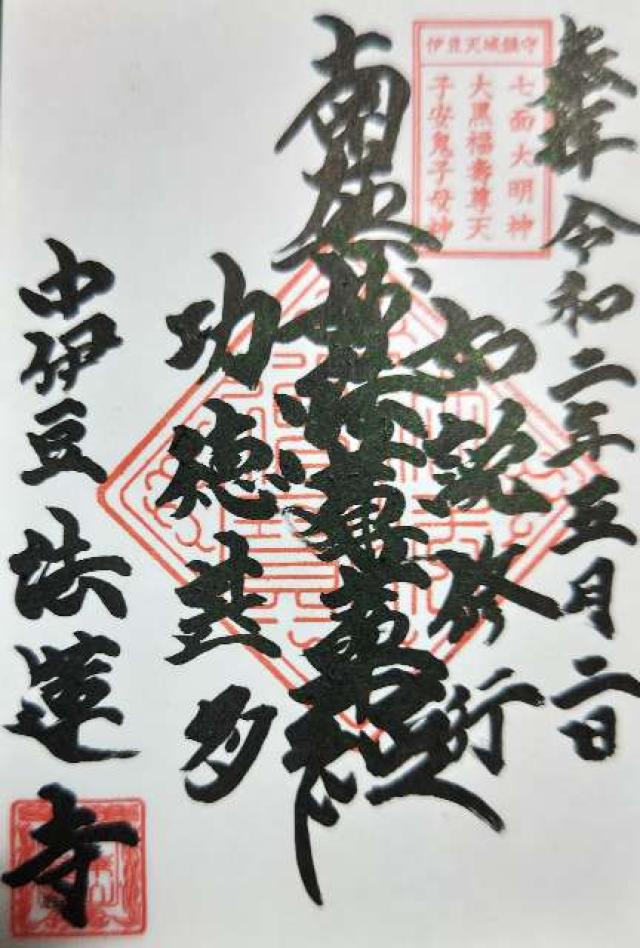 奉拝 令和二年五月二日
伊豆天城鎮守
七面大明神
大黒福寿尊天
子安鬼子母神
如説修行
南無妙法蓮華経
功徳甚多
中伊豆 法蓮寺